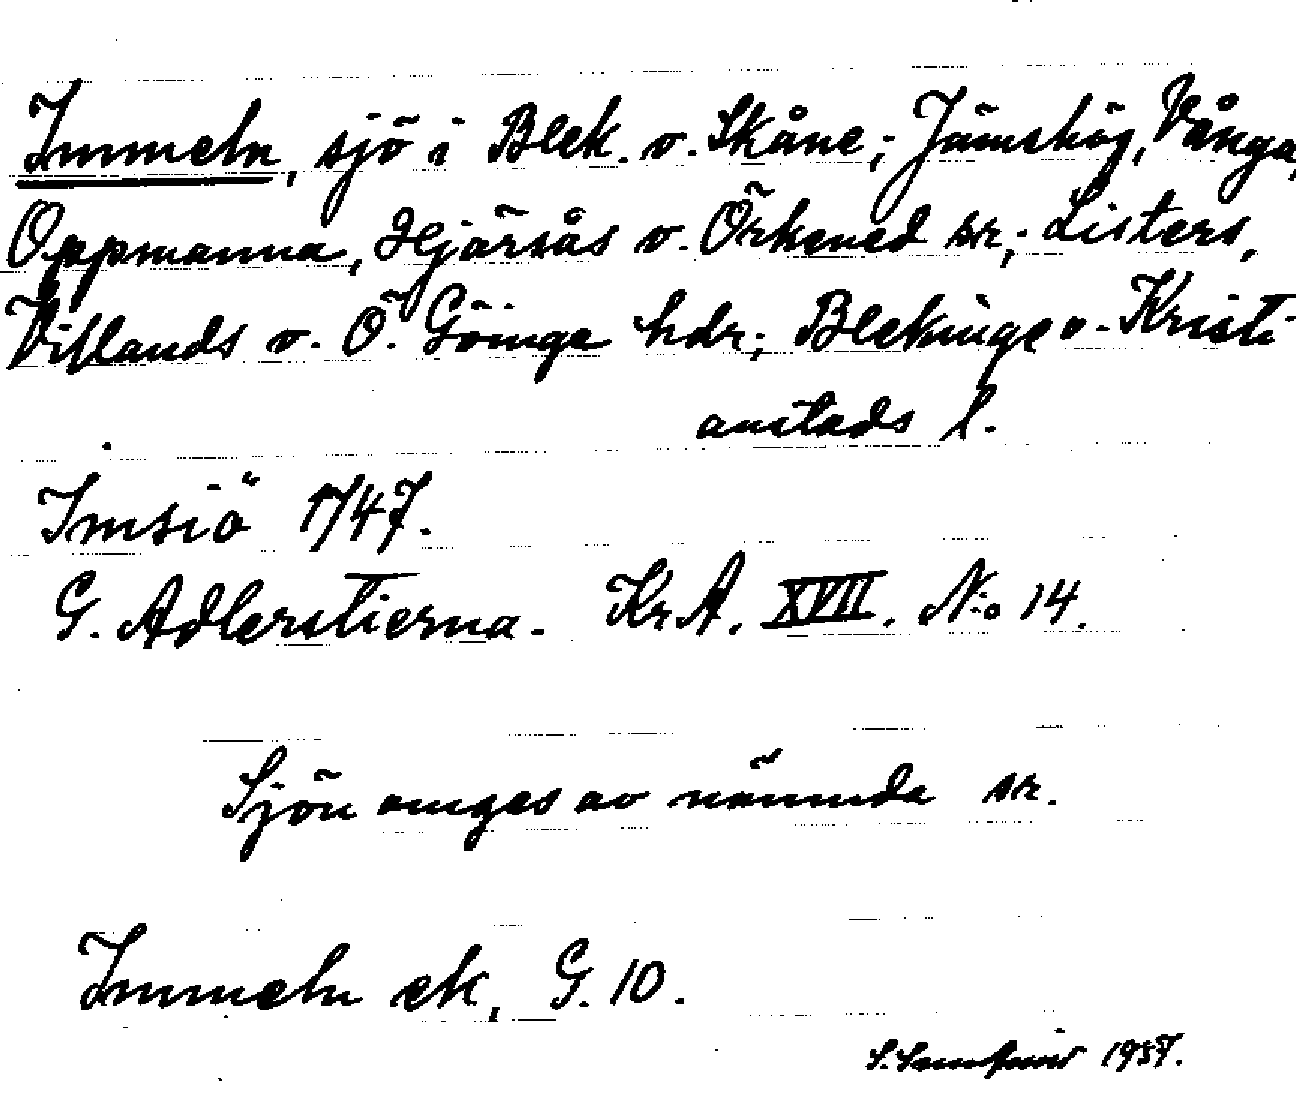 Immeln, sjö i Blek. o. Skåne; Jämshög, Vånga,
Oppmanna, Hjärsås o. Örkened sr; Listers,
Villands o. Ö. Göinge hdr; Blekinge o. Kristi-
anstads l.
Imsiö 1747.
G. Adlerstierna. Kr. A. XVII. N:o 14.
Sjön omges av nämnda sr.
Immeln ek, G. 10.
1937.